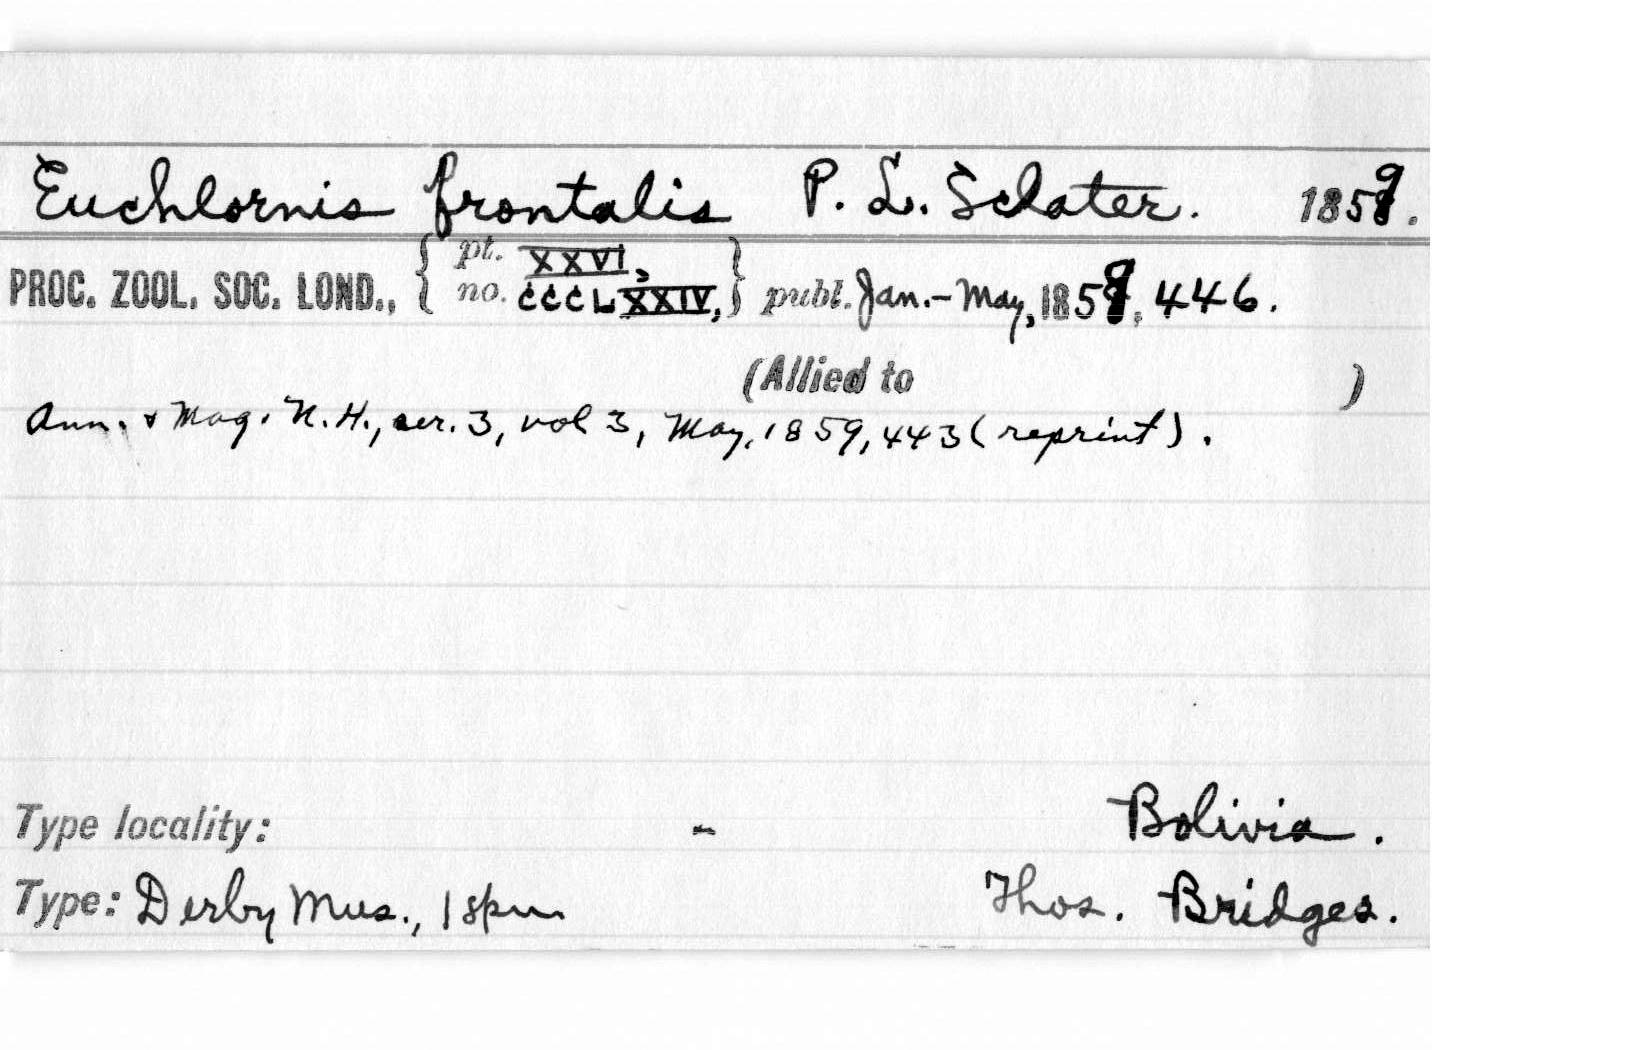 Euchlornis frontalis P. L. Sclater. 1859.
PROC. ZOOL. SOC. LOND., { pt. XXVI, no. CCCLXXIV, } publ. Jan.-May, 1859, 446.
(Allied to )
Ann. & Mag. N. H., ser. 3, vol 3, May, 1859, 443 (reprint).
Type locality: - Bolivia.
Type: Derby Mus., 1 spm Thos. Bridges.